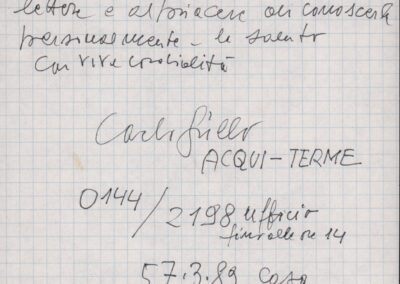 lettere e al piacere di conoscerla
personalmente - la saluto
con viva cordialità
Carlo
ACQUI-TERME
0144/2198 ufficio
fino alle ore 14
57.3.89 casa